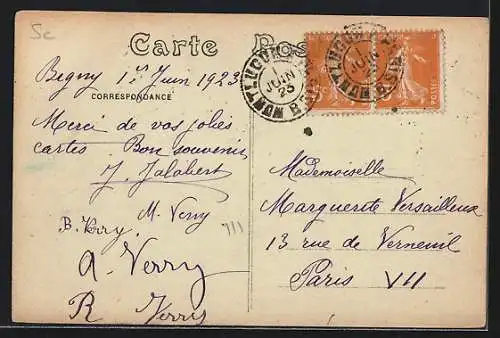 5c
Carte Pos
Bégny 1er Juin 1923
CORRESPONDANCE
Merci de vos jolies
cartes Bon souvenir
J. Jalabert
M. Verry
B. Verry
A. Verry
R Verry
MONTLUÇON
1
JUIN
23
POSTES
Mademoiselle
Marguerite Versailleux
13 rue de Verneuil
Paris VII